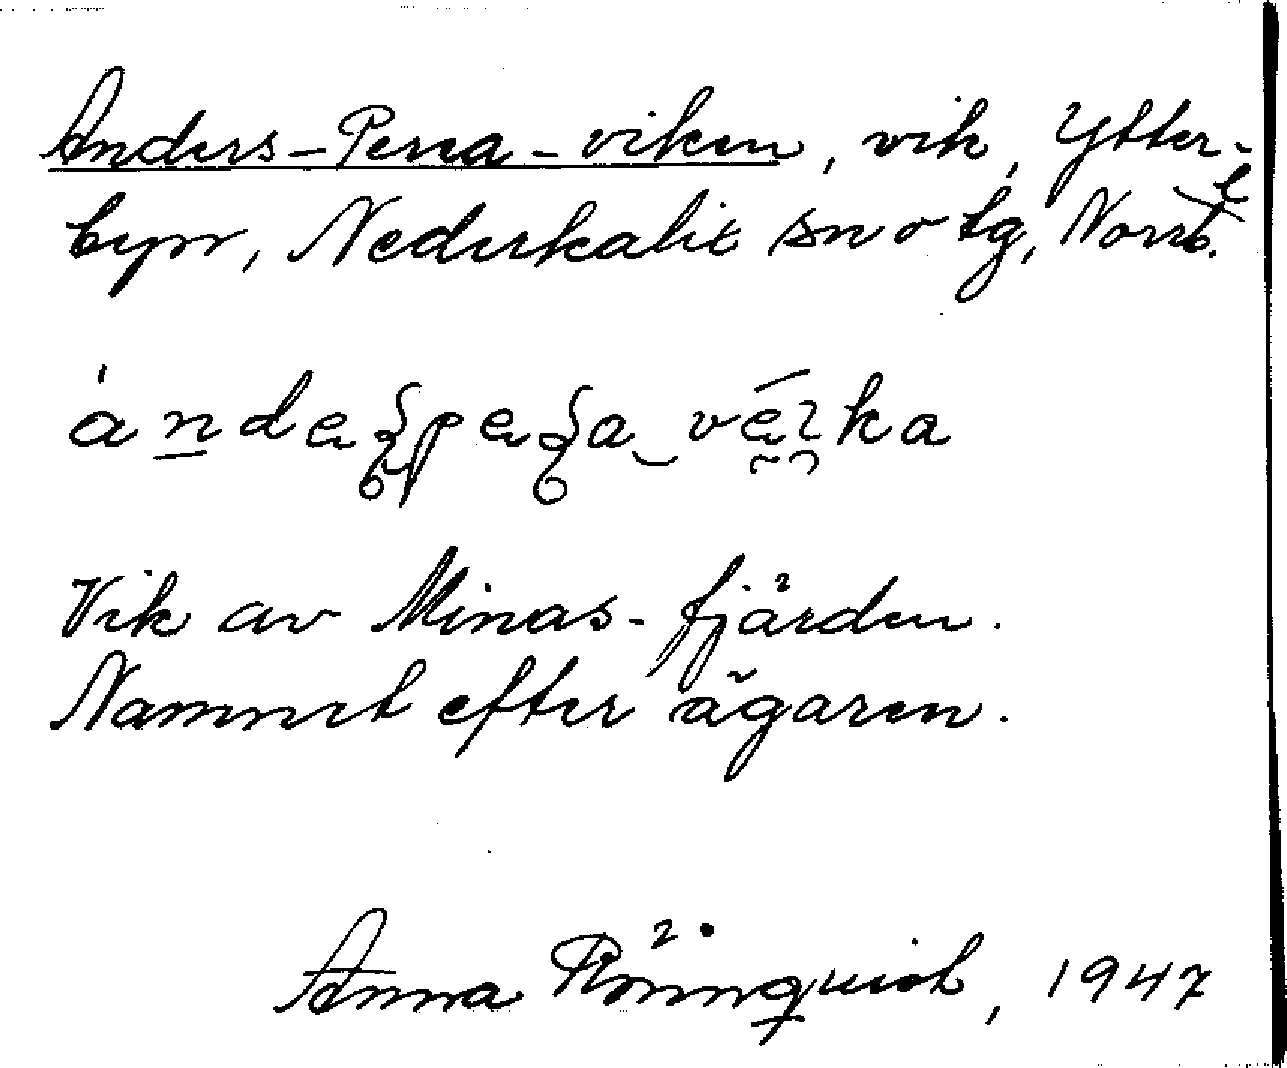 Anders-Persa-viken, vik, Ytter-
byn, Nederkalix sn o tg, Norrb.
Vik av Minas-fjärden.
Namnet efter ägaren.
Anna Rönnqvist, 1947